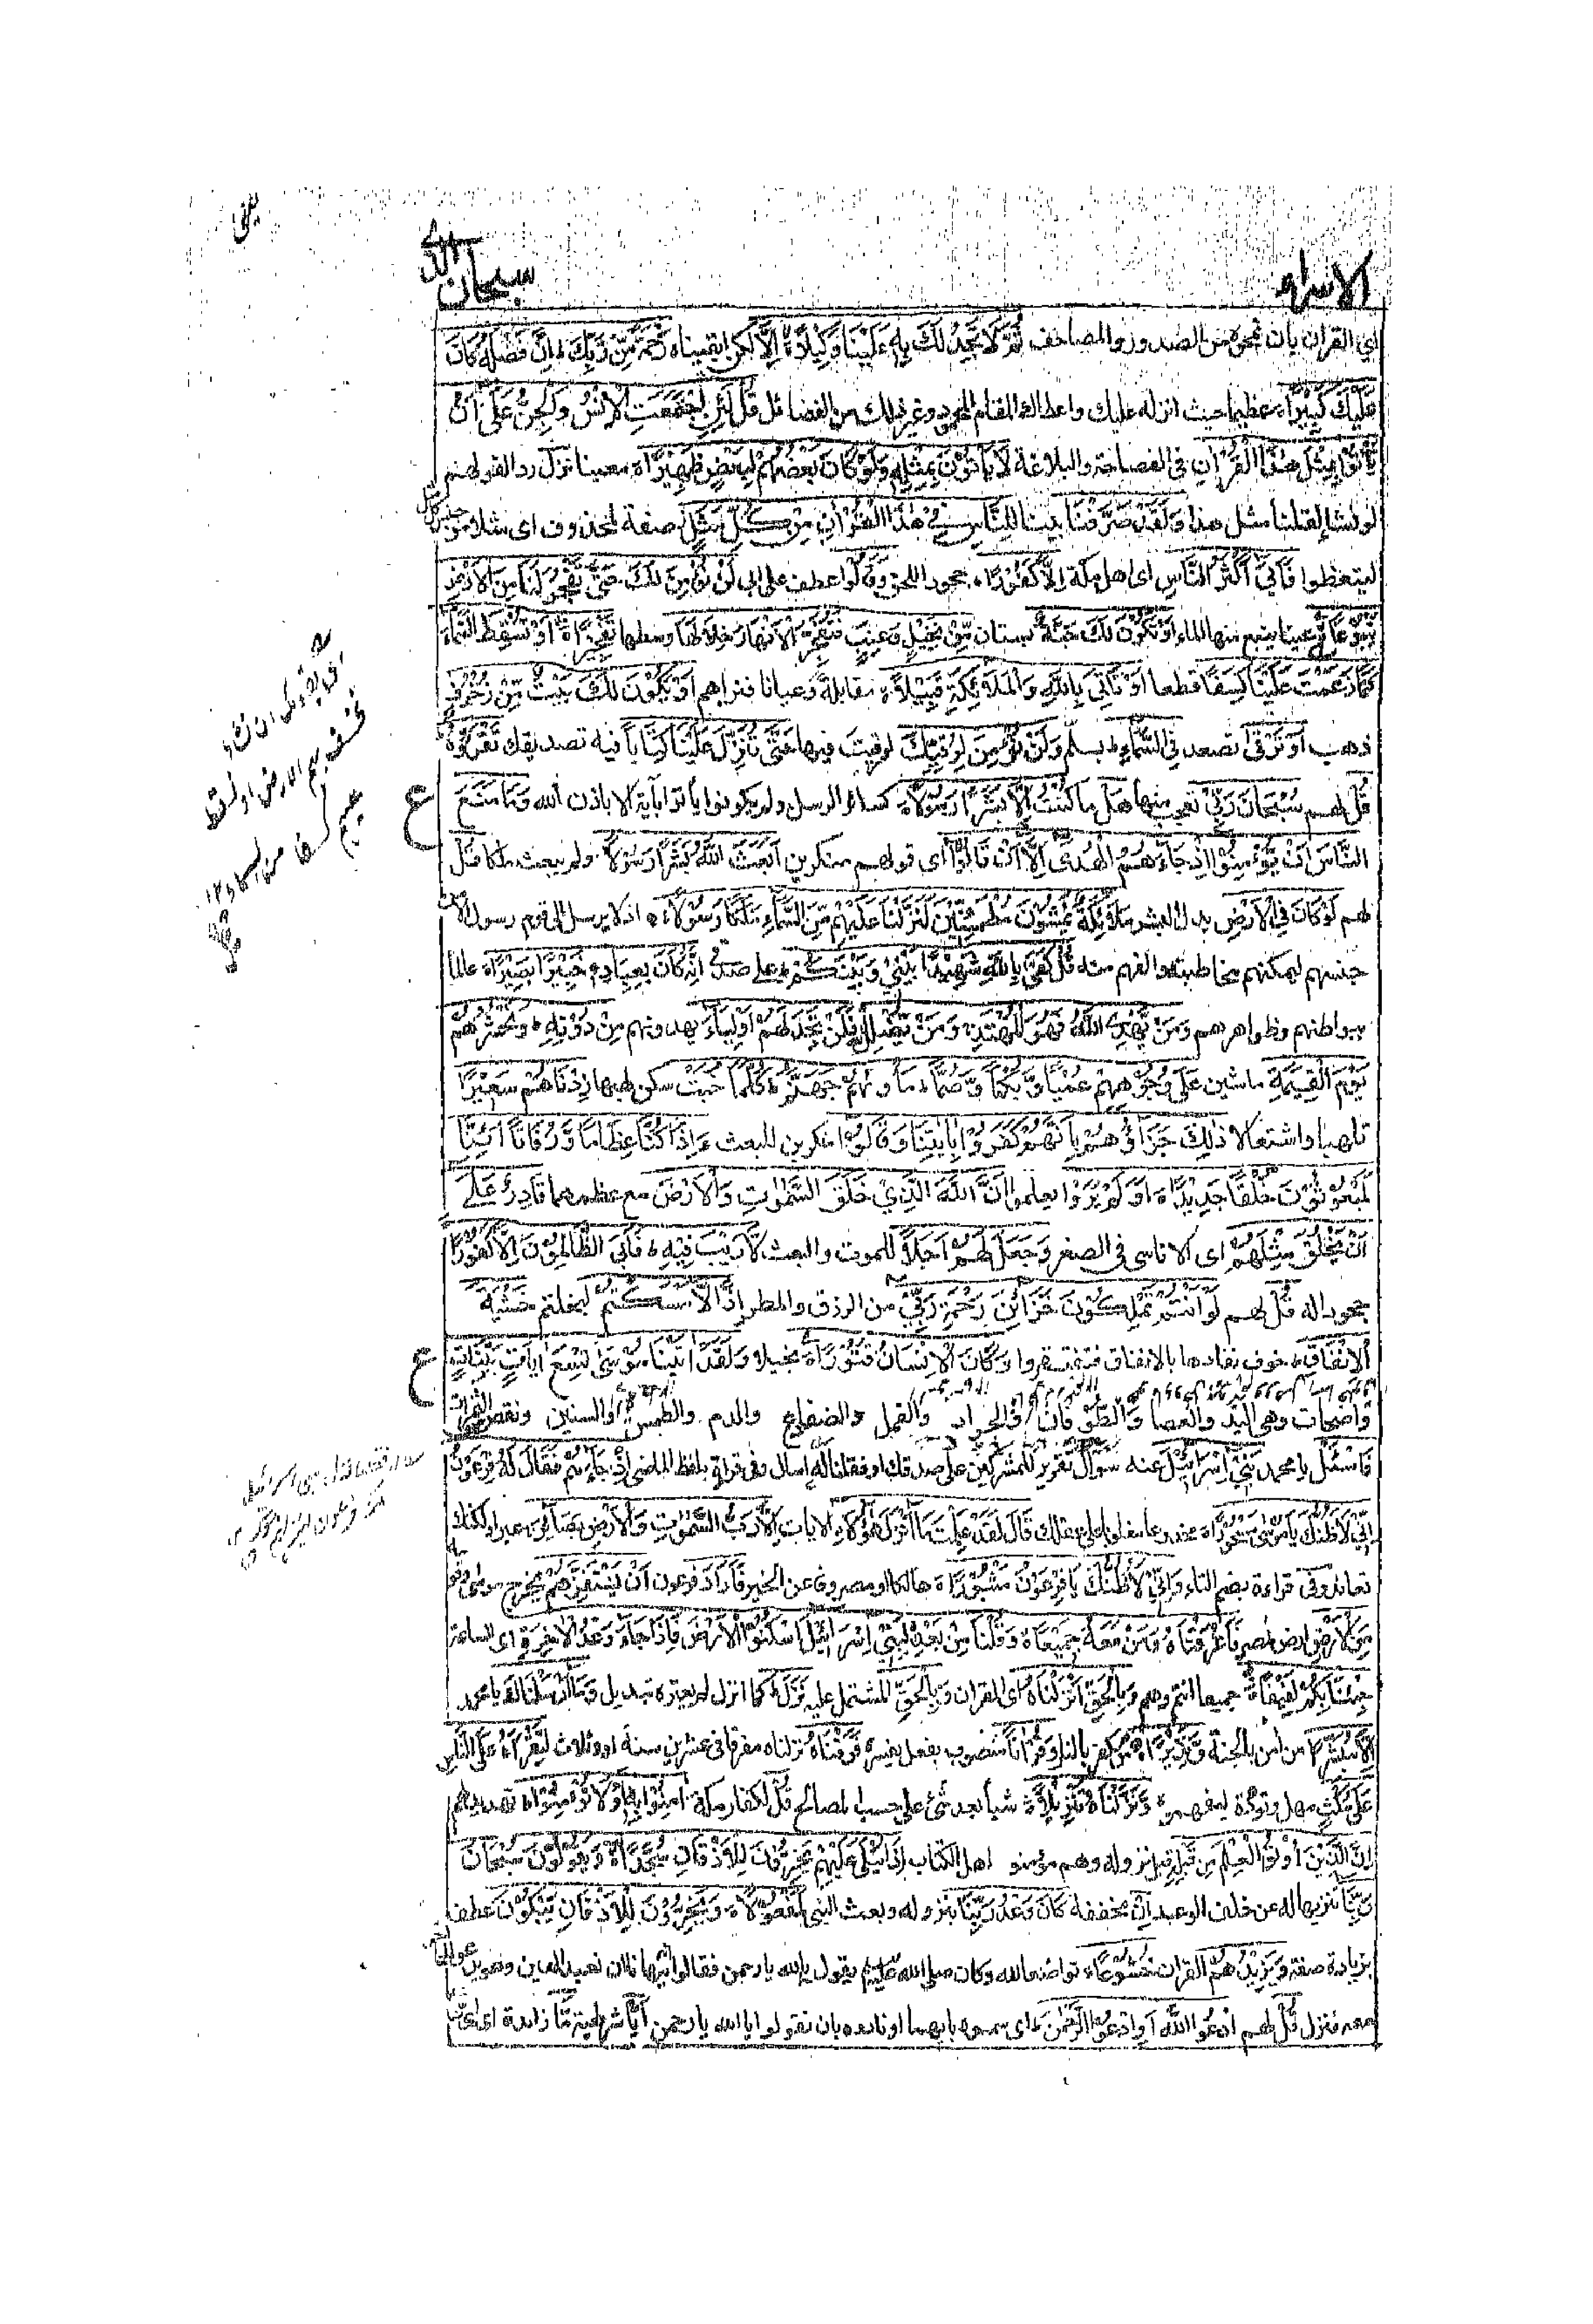 الاسراء
سبحان الذى
اي القران بان نمحوه من الصدور والمصاحف ثُمَّ لَا تَجِدُ لَكَ بِهٖ عَلَيْنَا وَكِيْلًا اِلَّا لكن ابقيناه رَحْمَةً مِّنْ رَّبِّكَ اِنَّ فَضْلَهٗ كَانَ
عَلَيْكَ كَبِيْرًا عظيما حيث انزله عليك واعطاك المقام المحمود وغير ذلك من الفضائل قُلْ لَئِنِ اجْتَمَعَتِ الْاِنْسُ وَالْجِنُّ عَلٰى اَنْ
يَّأْتُوْا بِمِثْلِ هٰذَا الْقُرْاٰنِ فى الفصاحة والبلاغة لَا يَأْتُوْنَ بِمِثْلِهٖ وَلَوْ كَانَ بَعْضُهُمْ لِبَعْضٍ ظَهِيْرًا معينا نزل ردا لقولهم
لو نشاء لقلنا مثل هذا وَلَقَدْ صَرَّفْنَا بينا لِلنَّاسِ فِيْ هٰذَا الْقُرْاٰنِ مِنْ كُلِّ مَثَلٍ صفة لمحذوف اى مثلا من جنس كل مثل
ليتعظوا فَاَبٰى اَكْثَرُ النَّاسِ اى اهل مكة اِلَّا كُفُوْرًا جحودا للحق وَقَالُوْا عطف على ابى لَنْ نُّؤْمِنَ لَكَ حَتّٰى تَفْجُرَ لَنَا مِنَ الْاَرْضِ
يَنْبُوْعًا عينا ينبع منها الماء اَوْ تَكُوْنَ لَكَ جَنَّةٌ بستان مِّنْ نَّخِيْلٍ وَعِنَبٍ فَتُفَجِّرَ الْاَنْهَارَ خِلَالَهَا وسطها تَفْجِيْرًا اَوْ تُسْقِطَ السَّمَاءَ
كَمَا زَعَمْتَ عَلَيْنَا كِسَفًا قطعا اَوْ تَأْتِيَ بِاللّٰهِ وَالْمَلٰئِكَةِ قَبِيْلًا مقابلة وعيانا فنراهم اَوْ يَكُوْنَ لَكَ بَيْتٌ مِّنْ زُخْرُفٍ
ذهب اَوْ تَرْقٰى تصعد فِي السَّمَاءِ بسلم وَلَنْ نُّؤْمِنَ لِرُقِيِّكَ لو رقيت فيها حَتّٰى تُنَزِّلَ عَلَيْنَا كِتَابًا فيه تصديقك نَّقْرَؤُهٗ
قُلْ لهم سُبْحَانَ رَبِّيْ تعجب منها هَلْ ما كُنْتُ اِلَّا بَشَرًا رَّسُوْلًا كسائر الرسل ولم يكونوا يأتوا بآية الا باذن الله وَمَا مَنَعَ
النَّاسَ اَنْ يُّؤْمِنُوْا اِذْ جَاءَهُمُ الْهُدٰى اِلَّا اَنْ قَالُوْا اى قولهم منكرين اَبَعَثَ اللّٰهُ بَشَرًا رَّسُوْلًا ولم يبعث ملكا قُلْ
لهم لَوْ كَانَ فِي الْاَرْضِ بدل البشر مَلٰئِكَةٌ يَّمْشُوْنَ مُطْمَئِنِّيْنَ لَنَزَّلْنَا عَلَيْهِمْ مِّنَ السَّمَاءِ مَلَكًا رَّسُوْلًا اذ لا يرسل الى قوم رسول الا من
جنسهم ليمكنهم مخاطبته والفهم منه قُلْ كَفٰى بِاللّٰهِ شَهِيْدًا بَيْنِيْ وَبَيْنَكُمْ على صدقى اِنَّهٗ كَانَ بِعِبَادِهٖ خَبِيْرًا بَصِيْرًا عالما
ببواطنهم وظواهرهم وَمَنْ يَّهْدِ اللّٰهُ فَهُوَ الْمُهْتَدِ وَمَنْ يُّضْلِلْ فَلَنْ تَجِدَ لَهُمْ اَوْلِيَاءَ يهدونهم مِنْ دُوْنِهٖ وَنَحْشُرُهُمْ
يَوْمَ الْقِيٰمَةِ ماشين عَلٰى وُجُوْهِهِمْ عُمْيًا وَّبُكْمًا وَّصُمًّا مَأْوٰىهُمْ جَهَنَّمُ كُلَّمَا خَبَتْ سكن لهبها زِدْنَاهُمْ سَعِيْرًا
تلهبا واشتعالا ذٰلِكَ جَزَاؤُهُمْ بِاَنَّهُمْ كَفَرُوْا بِاٰيٰتِنَا وَقَالُوْا منكرين للبعث ءَاِذَا كُنَّا عِظَامًا وَّرُفَاتًا اَئِنَّا
لَمَبْعُوْثُوْنَ خَلْقًا جَدِيْدًا اَوَلَمْ يَرَوْا يعلموا اَنَّ اللّٰهَ الَّذِيْ خَلَقَ السَّمٰوٰتِ وَالْاَرْضَ مع عظمهما قَادِرٌ عَلٰى
اَنْ يَّخْلُقَ مِثْلَهُمْ اى الاناسى فى الصغر وَجَعَلَ لَهُمْ اَجَلًا للموت والبعث لَّا رَيْبَ فِيْهِ فَاَبَى الظَّالِمُوْنَ اِلَّا كُفُوْرًا
جحودا له قُلْ لهم لَّوْ اَنْتُمْ تَمْلِكُوْنَ خَزَائِنَ رَحْمَةِ رَبِّيْ من الرزق والمطر اِذًا لَّاَمْسَكْتُمْ لبخلتم خَشْيَةَ
الْاِنْفَاقِ خوف نفادها بالانفاق فتفتقروا وَكَانَ الْاِنْسَانُ قَتُوْرًا بخيلا وَلَقَدْ اٰتَيْنَا مُوْسٰى تِسْعَ اٰيَاتٍ بَيِّنَاتٍ
واضحات وهى اليد والعصا والطوفان والجراد والقمل والضفادع والدم والطمس والسنين ونقص الثمرات
فَاسْئَلْ يا محمد بَنِيْ اِسْرَائِيْلَ عنه سؤال تقرير للمشركين على صدقك او فقلنا له اسال وفى قراءة بلفظ الماضى اِذْ جَاءَهُمْ فَقَالَ لَهٗ فِرْعَوْنُ
اِنِّيْ لَاَظُنُّكَ يَا مُوْسٰى مَسْحُوْرًا مخدوعا مغلوبا على عقلك قَالَ لَقَدْ عَلِمْتَ مَا اَنْزَلَ هٰؤُلَاءِ الايات اِلَّا رَبُّ السَّمٰوٰتِ وَالْاَرْضِ بَصَائِرَ عبرا ولكنك
تعاند وفى قراءة بضم التاء وَاِنِّيْ لَاَظُنُّكَ يَا فِرْعَوْنُ مَثْبُوْرًا هالكا او مصروفا عن الخير فَاَرَادَ فرعون اَنْ يَّسْتَفِزَّهُمْ يخرج موسى وقومه
مِنَ الْاَرْضِ ارض مصر فَاَغْرَقْنَاهُ وَمَنْ مَّعَهٗ جَمِيْعًا وَّقُلْنَا مِنْ بَعْدِهٖ لِبَنِيْ اِسْرَائِيْلَ اسْكُنُوا الْاَرْضَ فَاِذَا جَاءَ وَعْدُ الْاٰخِرَةِ اى الساعة
جِئْنَا بِكُمْ لَفِيْفًا جميعا انتم وهم وَبِالْحَقِّ اَنْزَلْنَاهُ اى القران وَبِالْحَقِّ المشتمل عليه نَزَلَ كما انزل لم يعتره تبديل وَمَا اَرْسَلْنَاكَ يا محمد
اِلَّا مُبَشِّرًا من امن بالجنة وَّنَذِيْرًا من كفر بالنار وَقُرْاٰنًا منصوب بفعل يفسره فَرَقْنَاهُ نزلناه مفرقا فى عشرين سنة او وثلاث لِتَقْرَاَهٗ عَلَى النَّاسِ
عَلٰى مُكْثٍ مهل وتؤدة ليفهموه وَنَزَّلْنَاهُ تَنْزِيْلًا شيأ بعد شئ على حسب المصالح قُلْ لكفار مكة اٰمِنُوْا بِهٖ اَوْ لَا تُؤْمِنُوْا تهديد لهم
اِنَّ الَّذِيْنَ اُوْتُوا الْعِلْمَ مِنْ قَبْلِهٖ قبل نزوله وهم مؤمنو اهل الكتاب اِذَا يُتْلٰى عَلَيْهِمْ يَخِرُّوْنَ لِلْاَذْقَانِ سُجَّدًا وَّيَقُوْلُوْنَ سُبْحَانَ
رَبِّنَا تنزيها له عن خلف الوعد اِنْ مخففة كَانَ وَعْدُ رَبِّنَا بنزوله وبعث النبى لَمَفْعُوْلًا وَيَخِرُّوْنَ لِلْاَذْقَانِ يَبْكُوْنَ عطف
بزيادة صفة وَيَزِيْدُهُمْ القران خُشُوْعًا تواضعا لله وكان صلى الله عليه وسلم يقول يا الله يا رحمن فقالوا ينهانا ان نعبد الهين وهو يدعو الها اخر
معه فنزل قُلْ لهم ادْعُوا اللّٰهَ اَوِ ادْعُوا الرَّحْمٰنَ اى سموه بايهما او نادوه بان تقولوا يا الله يا رحمن اَيًّا شرطية مَّا زائدة اى اى
ع
ع
ان نشأ
نخسف بهم الارض او نسقط
عليهم
كسفا من السماء ١٢